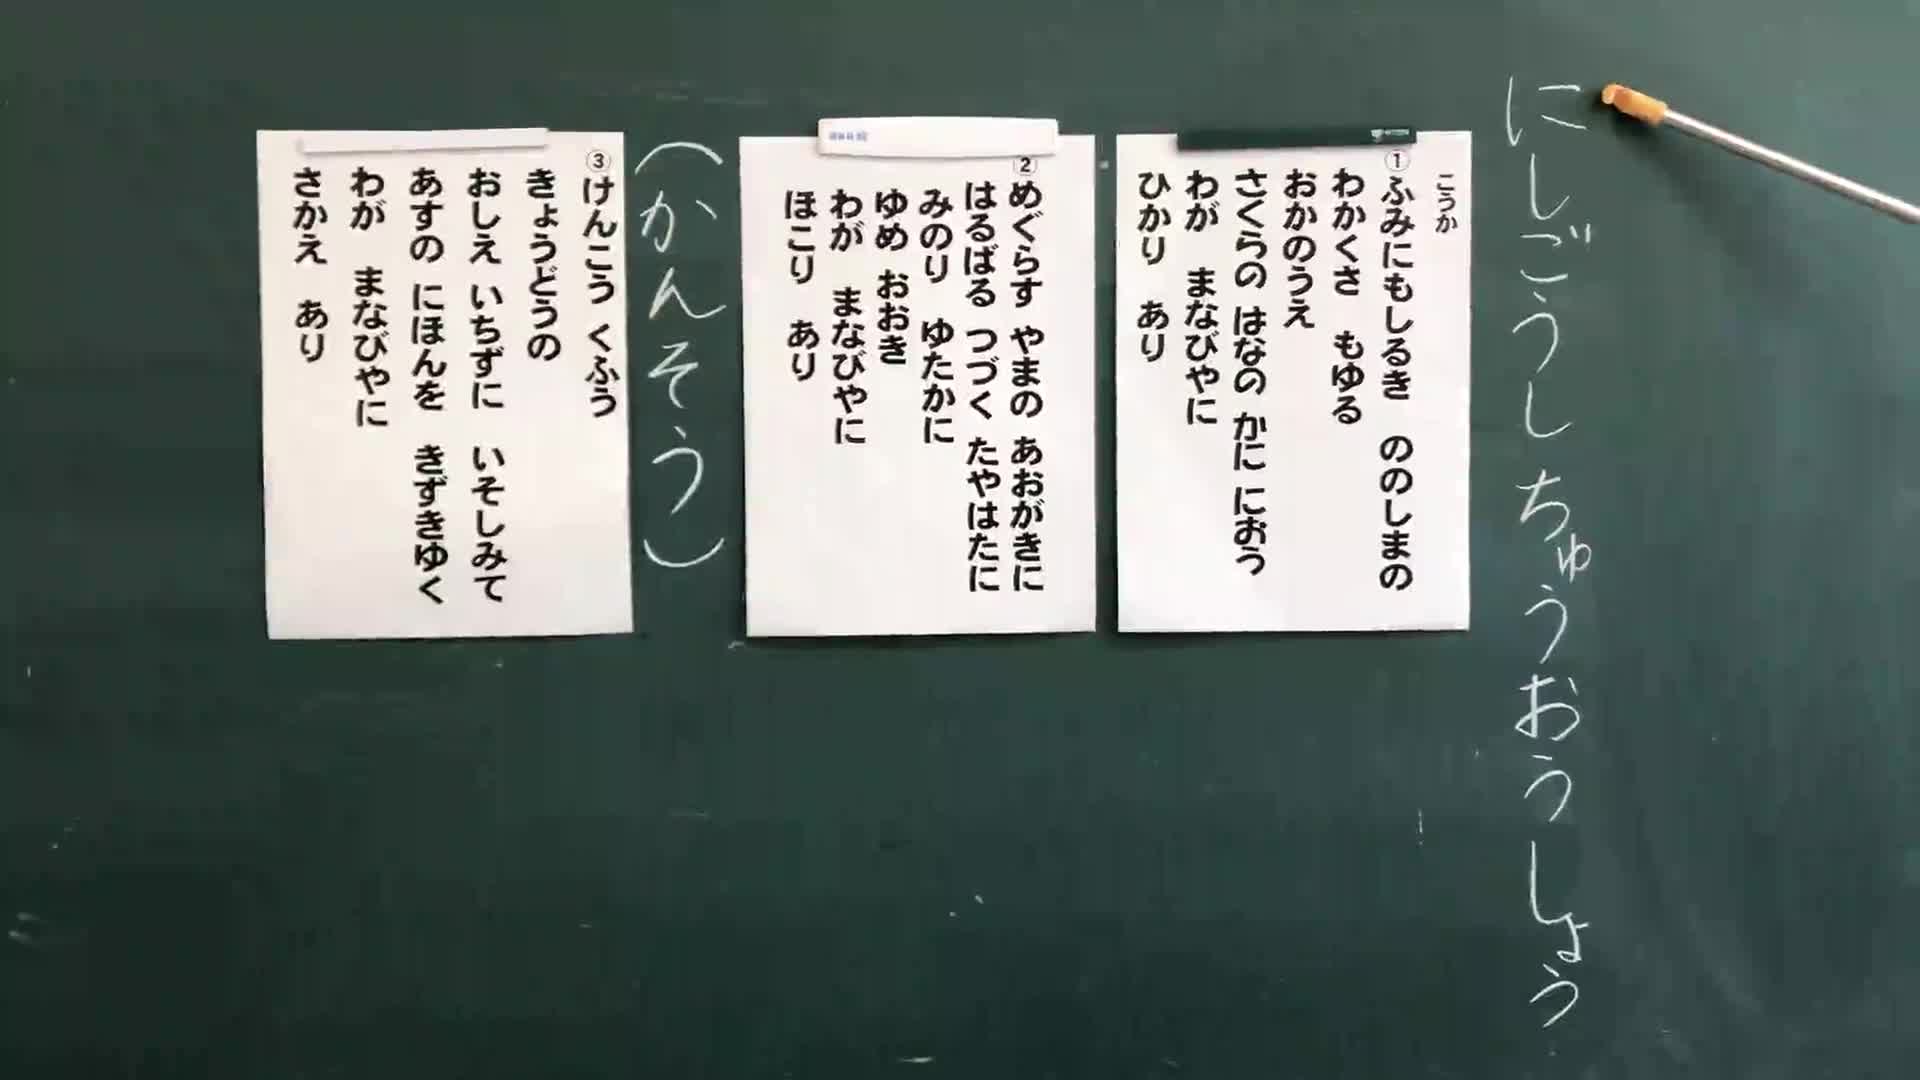 にしごうしちゅうおうしょう
こうか
①ふみにもしるき　ののしまの
わかくさ　もゆる
おかのうえ
さくらの はなの かに におう
わが　まなびやに
ひかり　あり
②めぐらす やまの あおがきに
はるばる つづく たやはたに
みのり　ゆたかに
ゆめ おおき
わが　まなびやに
ほこり　あり
（かんそう）
③けんこう くふう
きょうどうの
おしえ いちずに　いそしみて
あすの にほんを　きずきゆく
わが　まなびやに
さかえ　あり